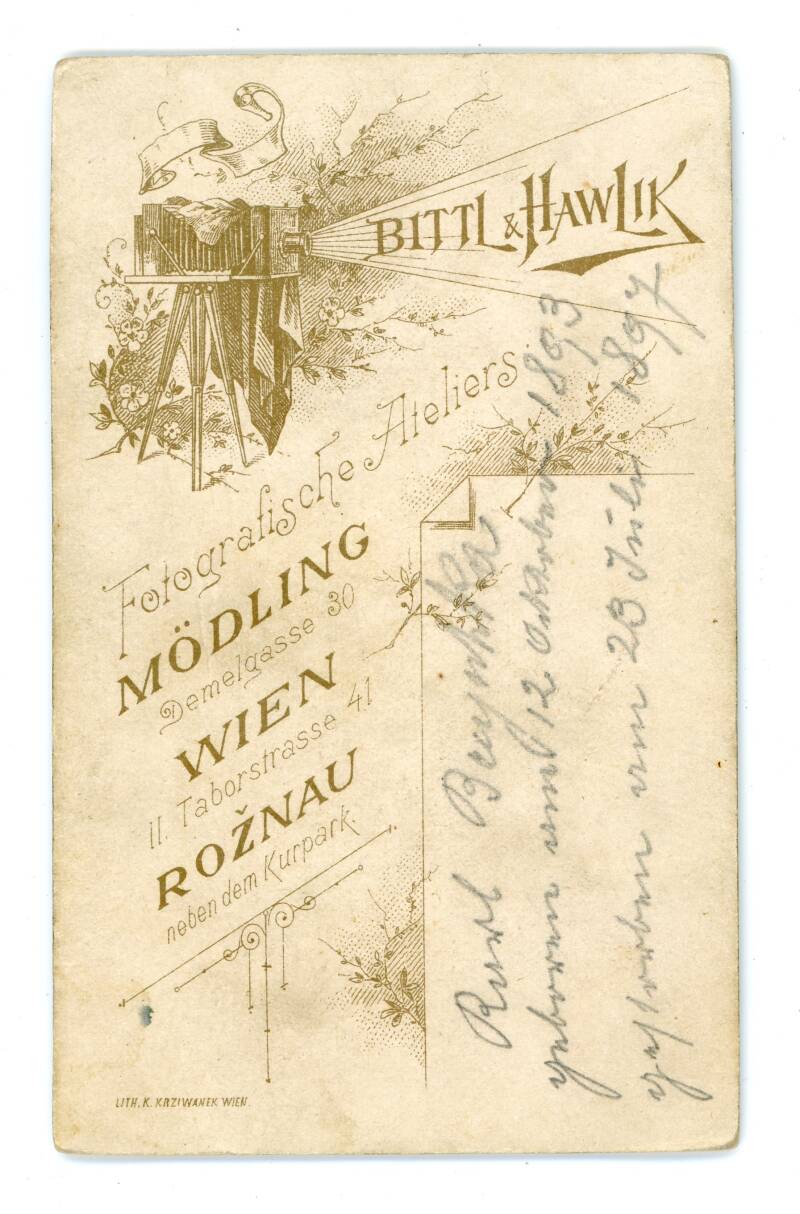 BITTL & HAWLIK
Fotografische Ateliers
MÖDLING
Demelgasse 30
WIEN
II. Taborstrasse 41
ROŽNAU
neben dem Kurpark.
LITH. K. KRZIWANEK WIEN.
Karl
geboren am 12 Oktober 1893
gestorben am 23 Juli 1897